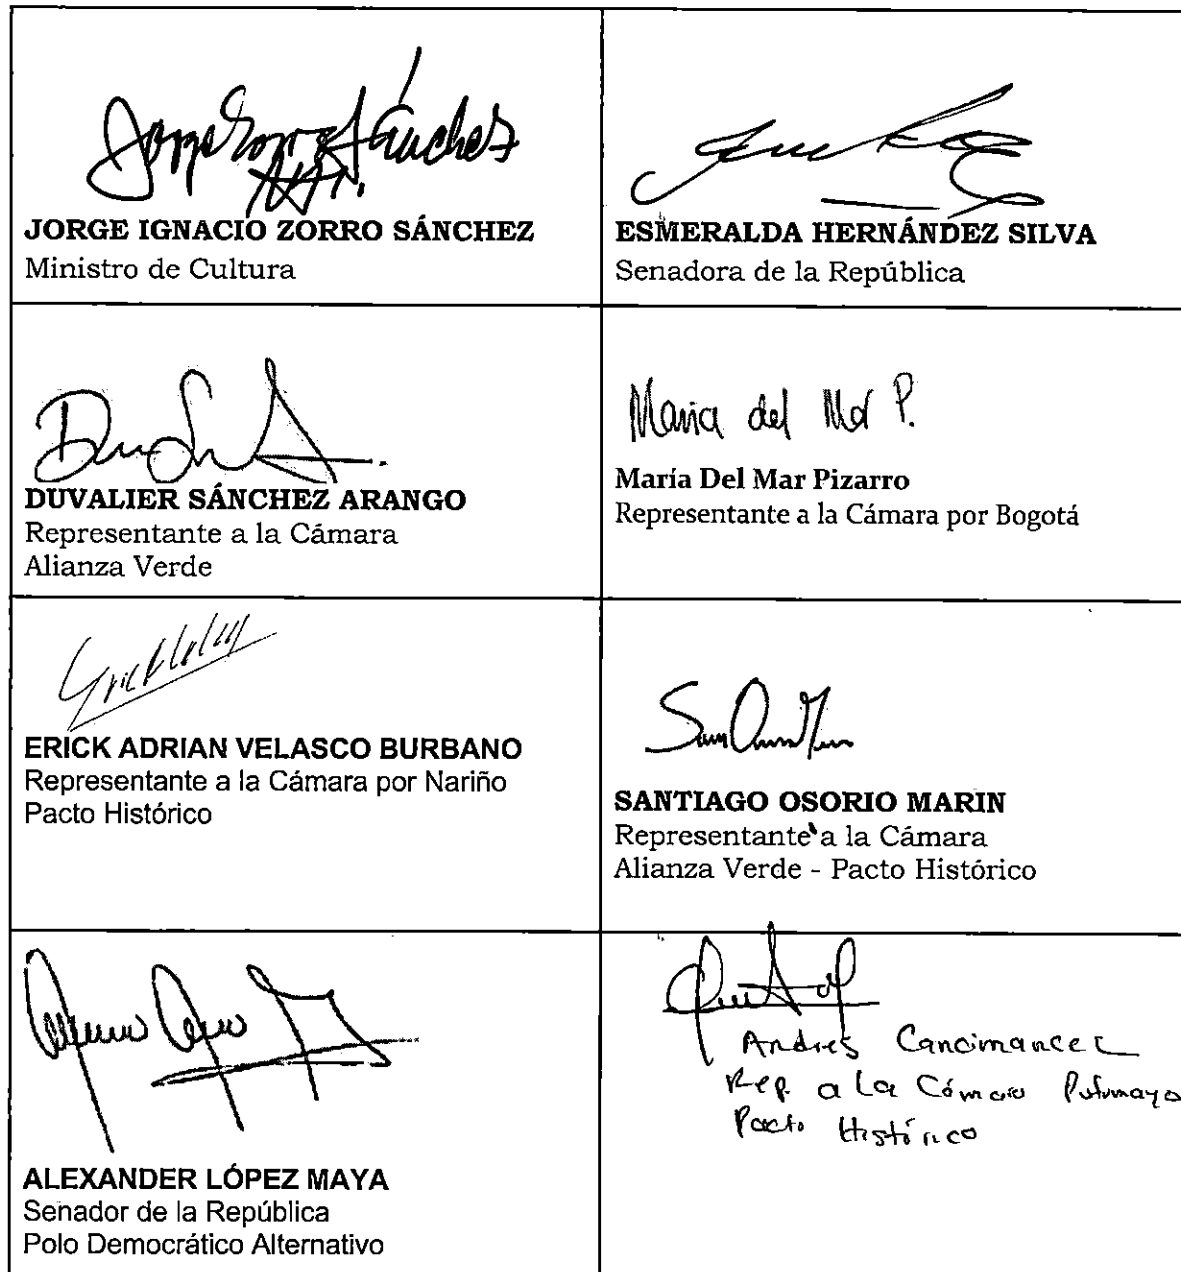 Jorge Zorro Sánchez
JORGE IGNACIO ZORRO SÁNCHEZ
Ministro de Cultura
ESMERALDA HERNÁNDEZ SILVA
Senadora de la República
DUVALIER SÁNCHEZ ARANGO
Representante a la Cámara
Alianza Verde
Maria del Mar P.
María Del Mar Pizarro
Representante a la Cámara por Bogotá
ERICK ADRIAN VELASCO BURBANO
Representante a la Cámara por Nariño
Pacto Histórico
SANTIAGO OSORIO MARIN
Representante a la Cámara
Alianza Verde - Pacto Histórico
ALEXANDER LÓPEZ MAYA
Senador de la República
Polo Democrático Alternativo
Andres Cancimance L
Rep. a La Cámara Putumayo
Pacto Histórico